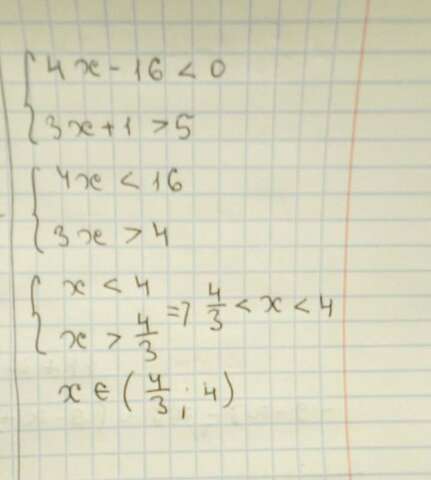 { 4x - 16 < 0
3x + 1 > 5
{ 4x < 16
3x > 4
{ x < 4
x > 4/3 => 4/3 < x < 4
x ∈ (4/3 ; 4)